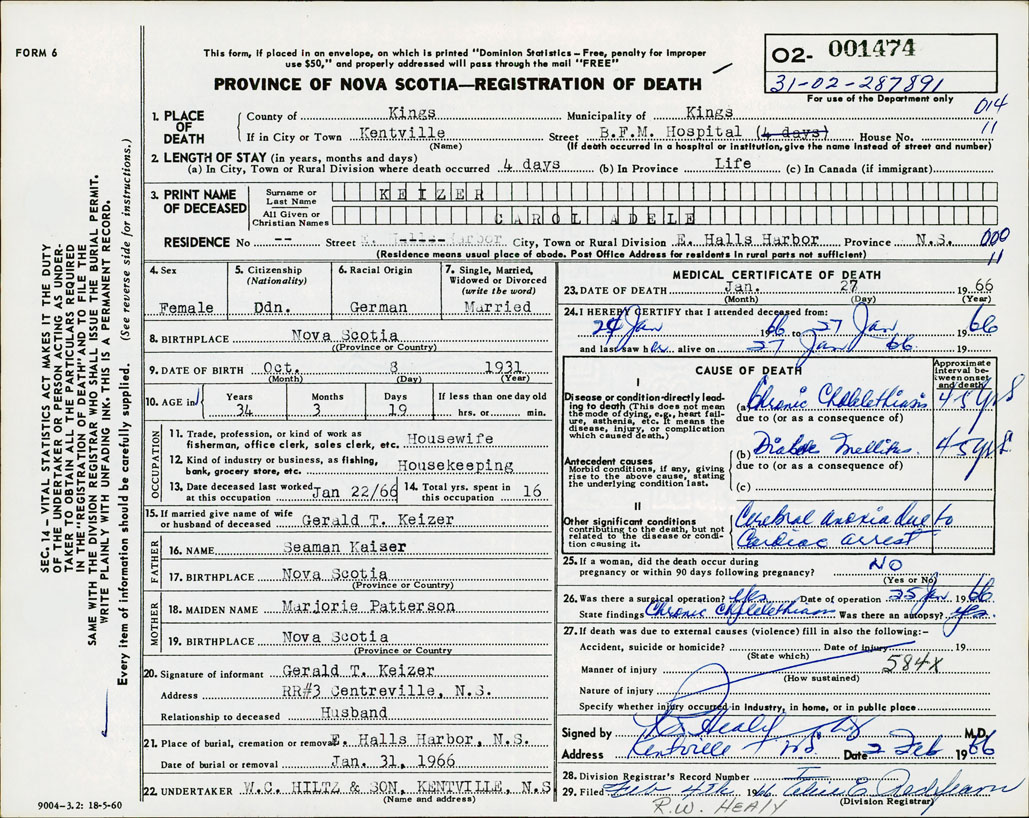 FORM 6
This form, if placed in an envelope, on which is printed "Dominion Statistics – Free, penalty for improper
use $50," and properly addressed will pass through the mail "FREE"
O2- 001474
31-02-287891
For use of the Department only
PROVINCE OF NOVA SCOTIA—REGISTRATION OF DEATH
014
11
1. PLACE OF DEATH
County of Kings Municipality of Kings
If in City or Town Kentville Street B.F.M. Hospital (4 days) House No.
(Name) (If death occurred in a hospital or institution, give the name instead of street and number)
2. LENGTH OF STAY (in years, months and days)
(a) In City, Town or Rural Division where death occurred 4 days (b) In Province Life (c) In Canada (if immigrant)
3. PRINT NAME OF DECEASED
Surname or Last Name KEIZER
All Given or Christian Names CAROL ADELE
RESIDENCE No -- Street E. Halls Harbor City, Town or Rural Division E. Halls Harbor Province N.S.
000
11
(Residence means usual place of abode. Post Office Address for residents in rural parts not sufficient)
4. Sex
Female
5. Citizenship (Nationality)
Ddn.
6. Racial Origin
German
7. Single, Married, Widowed or Divorced (write the word)
Married
8. BIRTHPLACE Nova Scotia
(Province or Country)
9. DATE OF BIRTH Oct. 8 1931
(Month) (Day) (Year)
10. AGE in
Years Months Days If less than one day old
34 3 19 hrs. or min.
OCCUPATION
11. Trade, profession, or kind of work as
fishermen, office clerk, sales clerk, etc. Housewife
12. Kind of industry or business, as fishing,
bank, grocery store, etc. Housekeeping
13. Date deceased last worked
at this occupation Jan 22/66
14. Total yrs. spent in
this occupation 16
15. If married give name of wife
or husband of deceased Gerald T. Keizer
FATHER
16. NAME Seaman Kaiser
17. BIRTHPLACE Nova Scotia
(Province or Country)
MOTHER
18. MAIDEN NAME Marjorie Patterson
19. BIRTHPLACE Nova Scotia
(Province or Country
20. Signature of informant Gerald T. Keizer
Address RR#3 Centreville, N.S.
Relationship to deceased Husband
21. Place of burial, cremation or removal E. Halls Harbor, N.S.
Date of burial or removal Jan. 31, 1966
22. UNDERTAKER W.C. HILTZ & SON, KENTVILLE, N.S
(Name and address)
9004-3.2: 18-5-60
MEDICAL CERTIFICATE OF DEATH
23. DATE OF DEATH Jan. 27 1966
(Month) (Day) (Year)
24. I HEREBY CERTIFY that I attended deceased from:
24 Jan 1966 to 27 Jan 1966
and last saw her alive on 27 Jan 66 19
CAUSE OF DEATH
Approximate interval between onset and death
I
Disease or condition-directly leading to death (This does not mean the mode of dying, e.g., heart failure, asthenia, etc. It means the disease, injury, or complication which caused death.)
(a) Chronic Cholelethiasis 4-5 yrs
due to (or as a consequence of)
(b) Diabetes Mellitus 4-5 yrs.
due to (or as a consequence of)
(c)
Antecedent causes
Morbid conditions, if any, giving
rise to the above cause, stating
the underlying condition last.
II
Other significant conditions
contributing to the death, but not
related to the disease or condition causing it.
Cerebral anoxia due to
Cardiac arrest
25. If a woman, did the death occur during
pregnancy or within 90 days following pregnancy? NO
(Yes or No)
26. Was there a surgical operation? yes Date of operation 25 Jan 1966
State findings Chronic Cholelethiasis Was there an autopsy? yes.
27. If death was due to external causes (violence) fill in also the following:–
Accident, suicide or homicide? Date of injury 19
(State which)
Manner of injury 584X
(How sustained)
Nature of injury
Specify whether injury occurred in Industry, in home, or in public place
Signed by R W Healy M.D.
Address Kentville N.S. Date 2 Feb 1966
28. Division Registrar's Record Number
29. Filed Feb 4th 1966
(Division Registrar)
R.W. HEALY
SEC. 14 – VITAL STATISTICS ACT MAKES IT THE DUTY
OF THE UNDERTAKER OR PERSON ACTING AS UNDER-
TAKER TO OBTAIN ALL THE PARTICULARS REQUIRED
IN THE "REGISTRATION OF DEATH" AND TO FILE THE
SAME WITH THE DIVISION REGISTRAR WHO SHALL ISSUE THE BURIAL PERMIT.
WRITE PLAINLY WITH UNFADING INK. THIS IS A PERMANENT RECORD.
Every item of information should be carefully supplied. (See reverse side for instructions.)